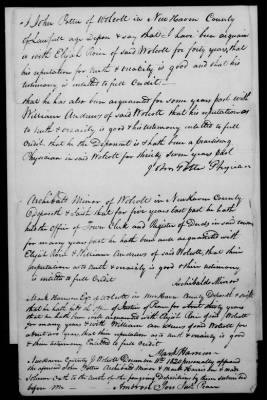 I John Potter of Wolcott in New Haven County
of Lawfull age Depose & say that I have been acquain
ted with Elijah Rowe of said Wolcott for forty years, that
his reputation for truth & veracity is good and that his
testimony is intitled to full Credit.
that he has also been acquainted for some years past with
William Andrews of said Wolcott that his reputation as
to truth & veracity is good & his testimony intitled to full
Credit that he the Deponent is & hath been a practising
Physician in said Wolcott for thirty seven years past.
John Potter Physician
Archibald Minor of Wolcott in New Haven County
Deposeth & saith that for five years last past he hath
held the office of Town Clerk and Register of Deeds in said town
for many years past he hath been well acquainted with
Elijah Rowe & William Andrews of said Wolcott, that their
reputation for truth and veracity is good & their testimony
is intitled to full Credit
Archibald Minor
Mark Harrison Esq of Wolcott in New Haven County Deposeth & saith
that he hath held the office of Justice of Peace for
that he hath been well acquainted with Elijah Rowe of said Wolcott
for many years & with William Andrews of said Wolcott for
about years that their reputation for truth & veracity is good
& their testimony entitled to full Credit
Mark Harrison
New Haven County Wolcott December 1820 personally appeared
the aforesaid John Potter Archibald Minor & Mark Harrison & made
Solemn oath to the truth of the foregoing Depositions by them subscribed
before me Just Peace